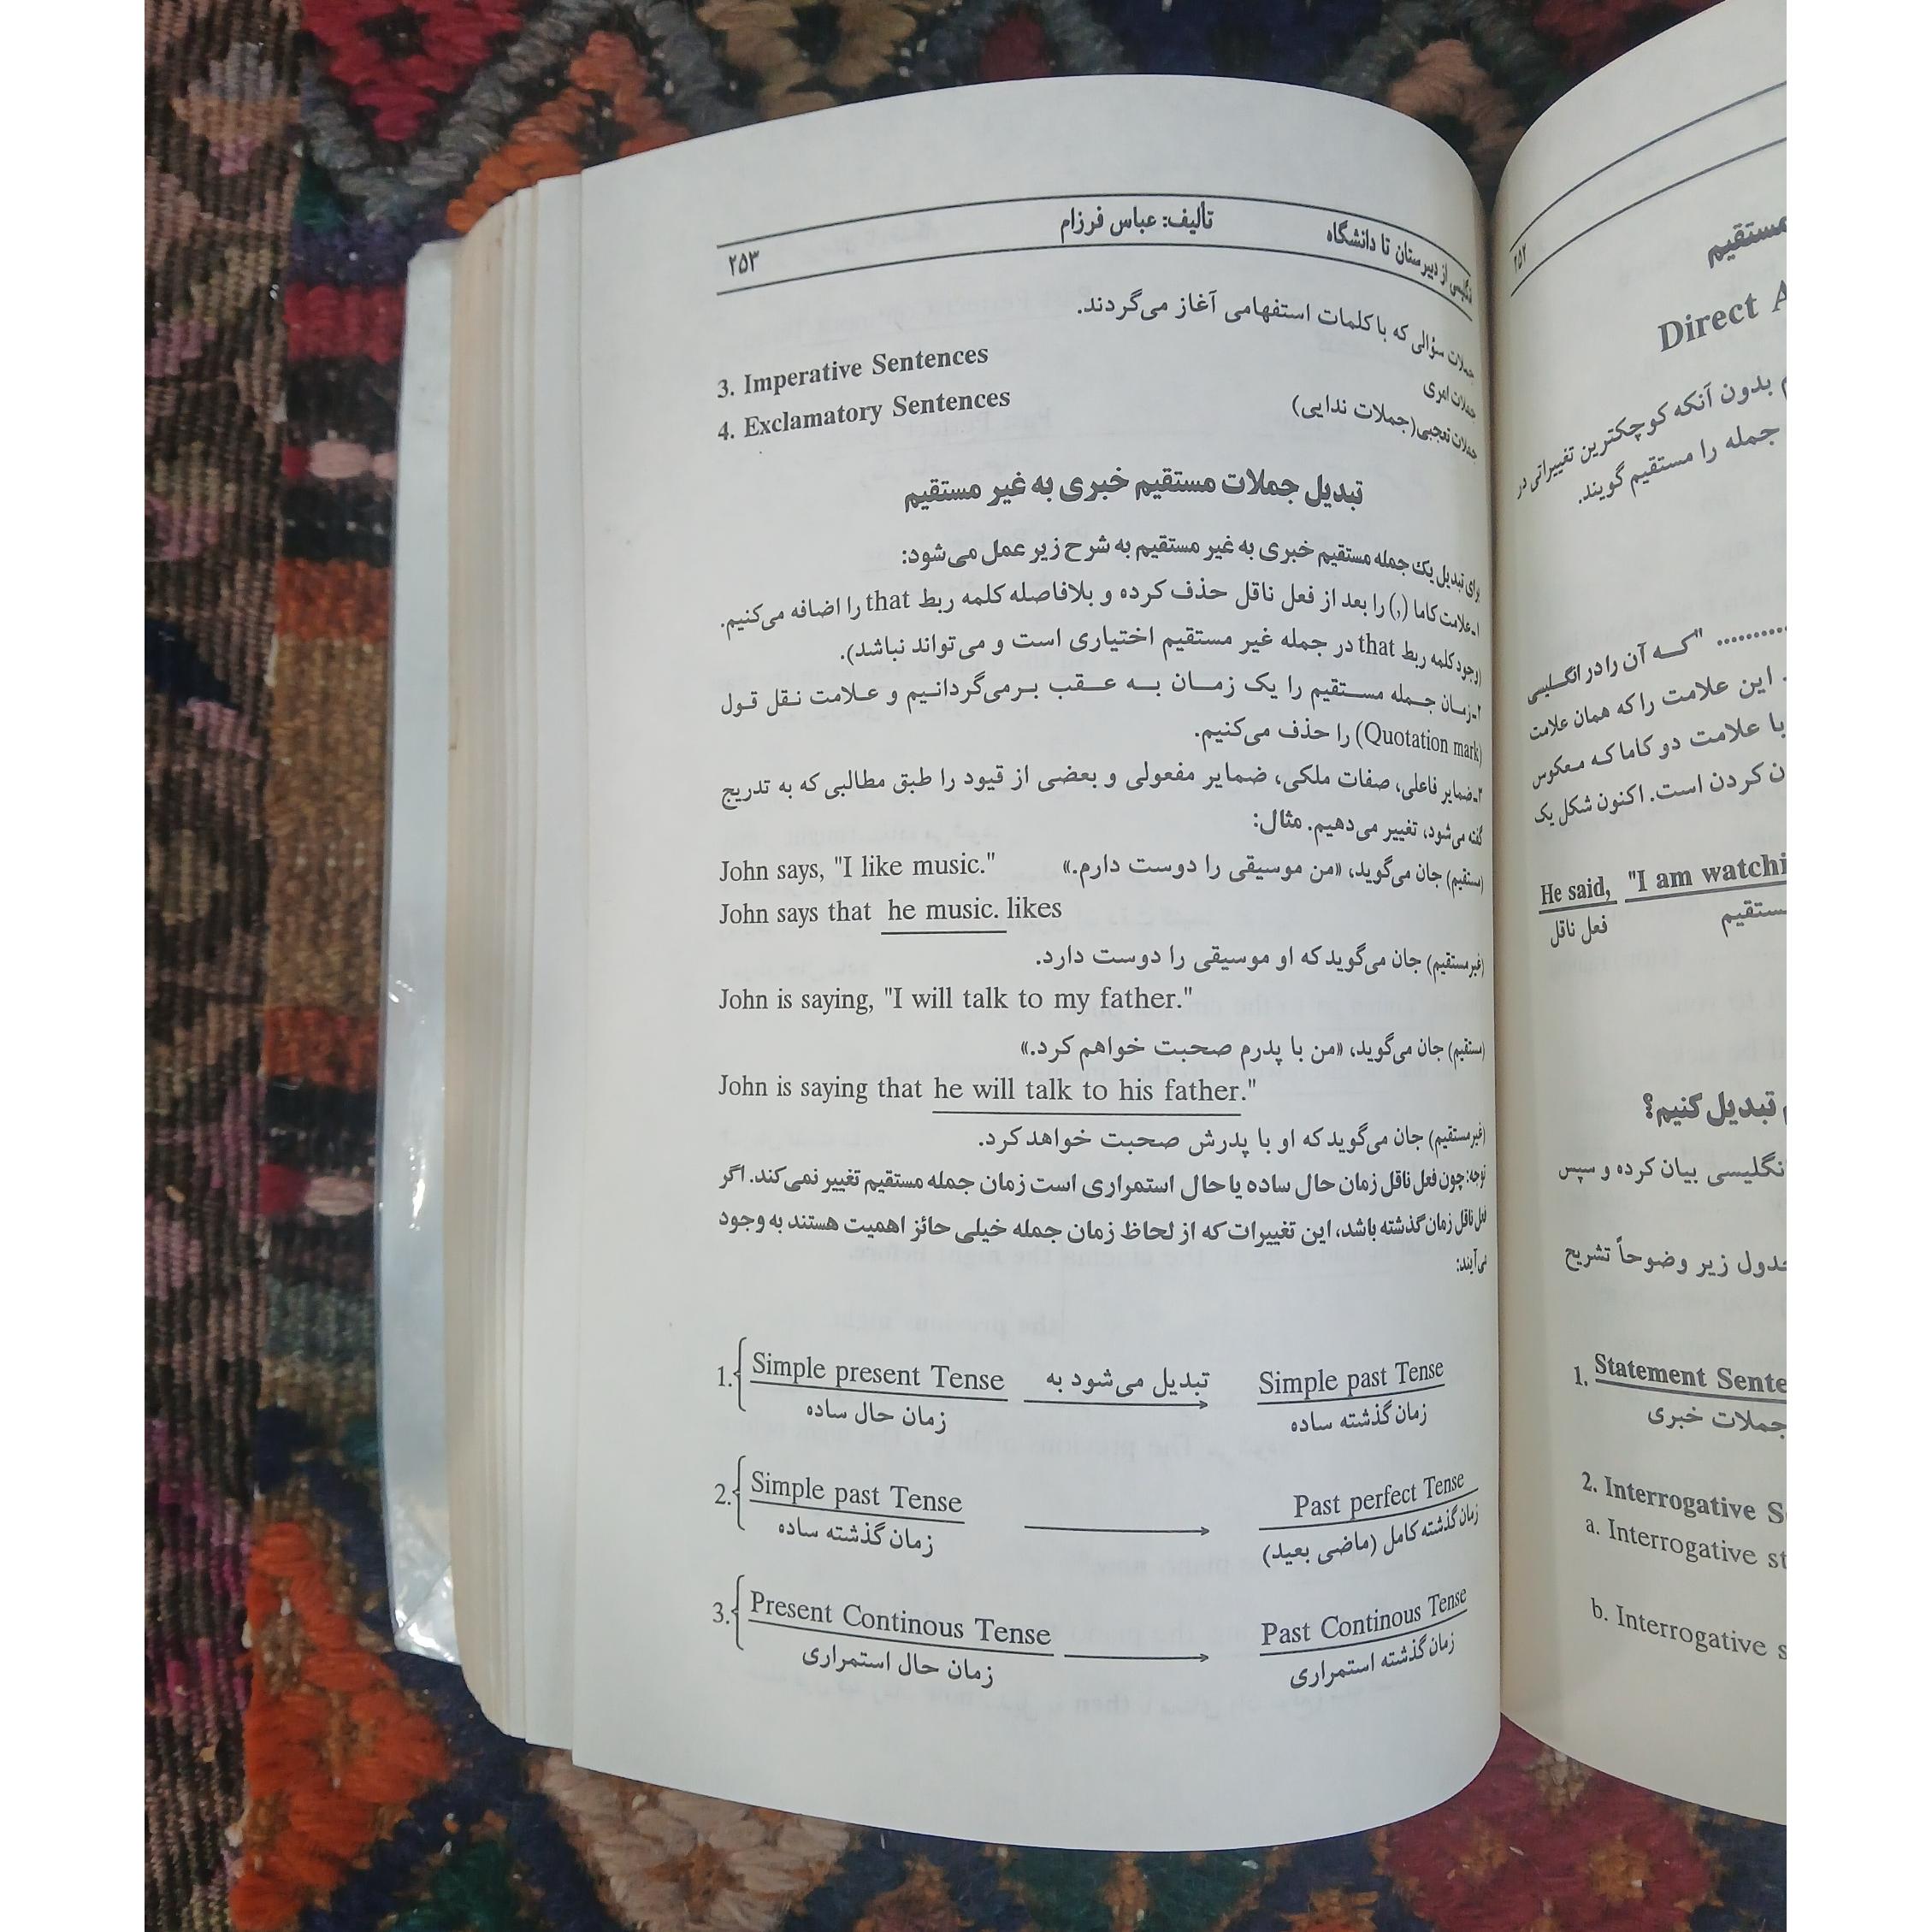 انگلیسی از دبیرستان تا دانشگاه تألیف: عباس فرزام ۲۵۳
جملات سؤالی که با کلمات استفهامی آغاز می‌گردند.
3. Imperative Sentences جملات امری
4. Exclamatory Sentences جملات تعجبی (جملات ندایی)
تبدیل جملات مستقیم خبری به غیر مستقیم
برای تبدیل یک جمله مستقیم خبری به غیر مستقیم به شرح زیر عمل می‌شود:
۱ـ علامت کاما (,) را بعد از فعل ناقل حذف کرده و بلافاصله کلمه ربط that را اضافه می‌کنیم.
(وجود کلمه ربط that در جمله غیر مستقیم اختیاری است و می‌تواند نباشد).
۲ـ زمـان جـمله مسـتقیم را یک زمـان بـه عـقب بـرمی‌گردانـیم و عـلامت نـقل قـول
(Quotation mark) را حذف می‌کنیم.
۳ـ ضمایر فاعلی، صفات ملکی، ضمایر مفعولی و بعضی از قیود را طبق مطالبی که به تدریج
گفته می‌شود، تغییر می‌دهیم. مثال:
John says, "I like music." (مستقیم) جان می‌گوید، «من موسیقی را دوست دارم.»
John says that he music. likes
(غیر مستقیم) جان می‌گوید که او موسیقی را دوست دارد.
John is saying, "I will talk to my father."
(مستقیم) جان می‌گوید، «من با پدرم صحبت خواهم کرد.»
John is saying that he will talk to his father."
(غیر مستقیم) جان می‌گوید که او با پدرش صحبت خواهد کرد.
توجه: چون فعل ناقل زمان حال ساده یا حال استمراری است زمان جمله مستقیم تغییر نمی‌کند. اگر
فعل ناقل زمان گذشته باشد، این تغییرات که از لحاظ زمان جمله خیلی حائز اهمیت هستند به وجود
می‌آیند:
1. Simple present Tense تبدیل می‌شود به Simple past Tense
زمان حال ساده زمان گذشته ساده
2. Simple past Tense Past perfect Tense
زمان گذشته ساده زمان گذشته کامل (ماضی بعید)
3. Present Continous Tense Past Continous Tense
زمان حال استمراری زمان گذشته استمراری
۲۵۲
مستقیم
Direct
بدون آنکه کوچکترین تغییراتی در
جمله را مستقیم گویند.
.......... "که آن را در انگلیسی
. این علامت را که همان علامت
با علامت دو کاما که معکوس
ن کردن است. اکنون شکل یک
He said, "I am watchi
فعل ناقل مستقیم
تبدیل کنیم؟
نگلیسی بیان کرده و سپس
جدول زیر وضوحاً تشریح
1. Statement Sente
جملات خبری
2. Interrogative S
a. Interrogative st
b. Interrogative s